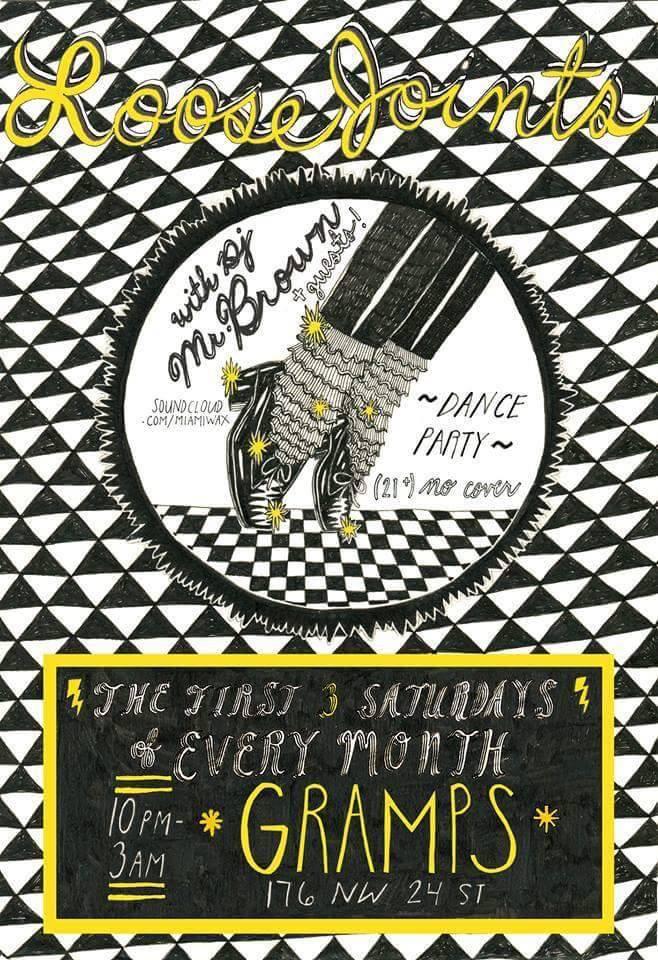 Loose Joints
with Dj
Mr. Brown
+ guests!
SOUNDCLOUD
.COM/MIAMIWAX
~DANCE
PARTY~
(21+) no cover
THE FIRST 3 SATURDAYS
of EVERY MONTH
10 PM-
3 AM
* GRAMPS *
176 NW 24 ST